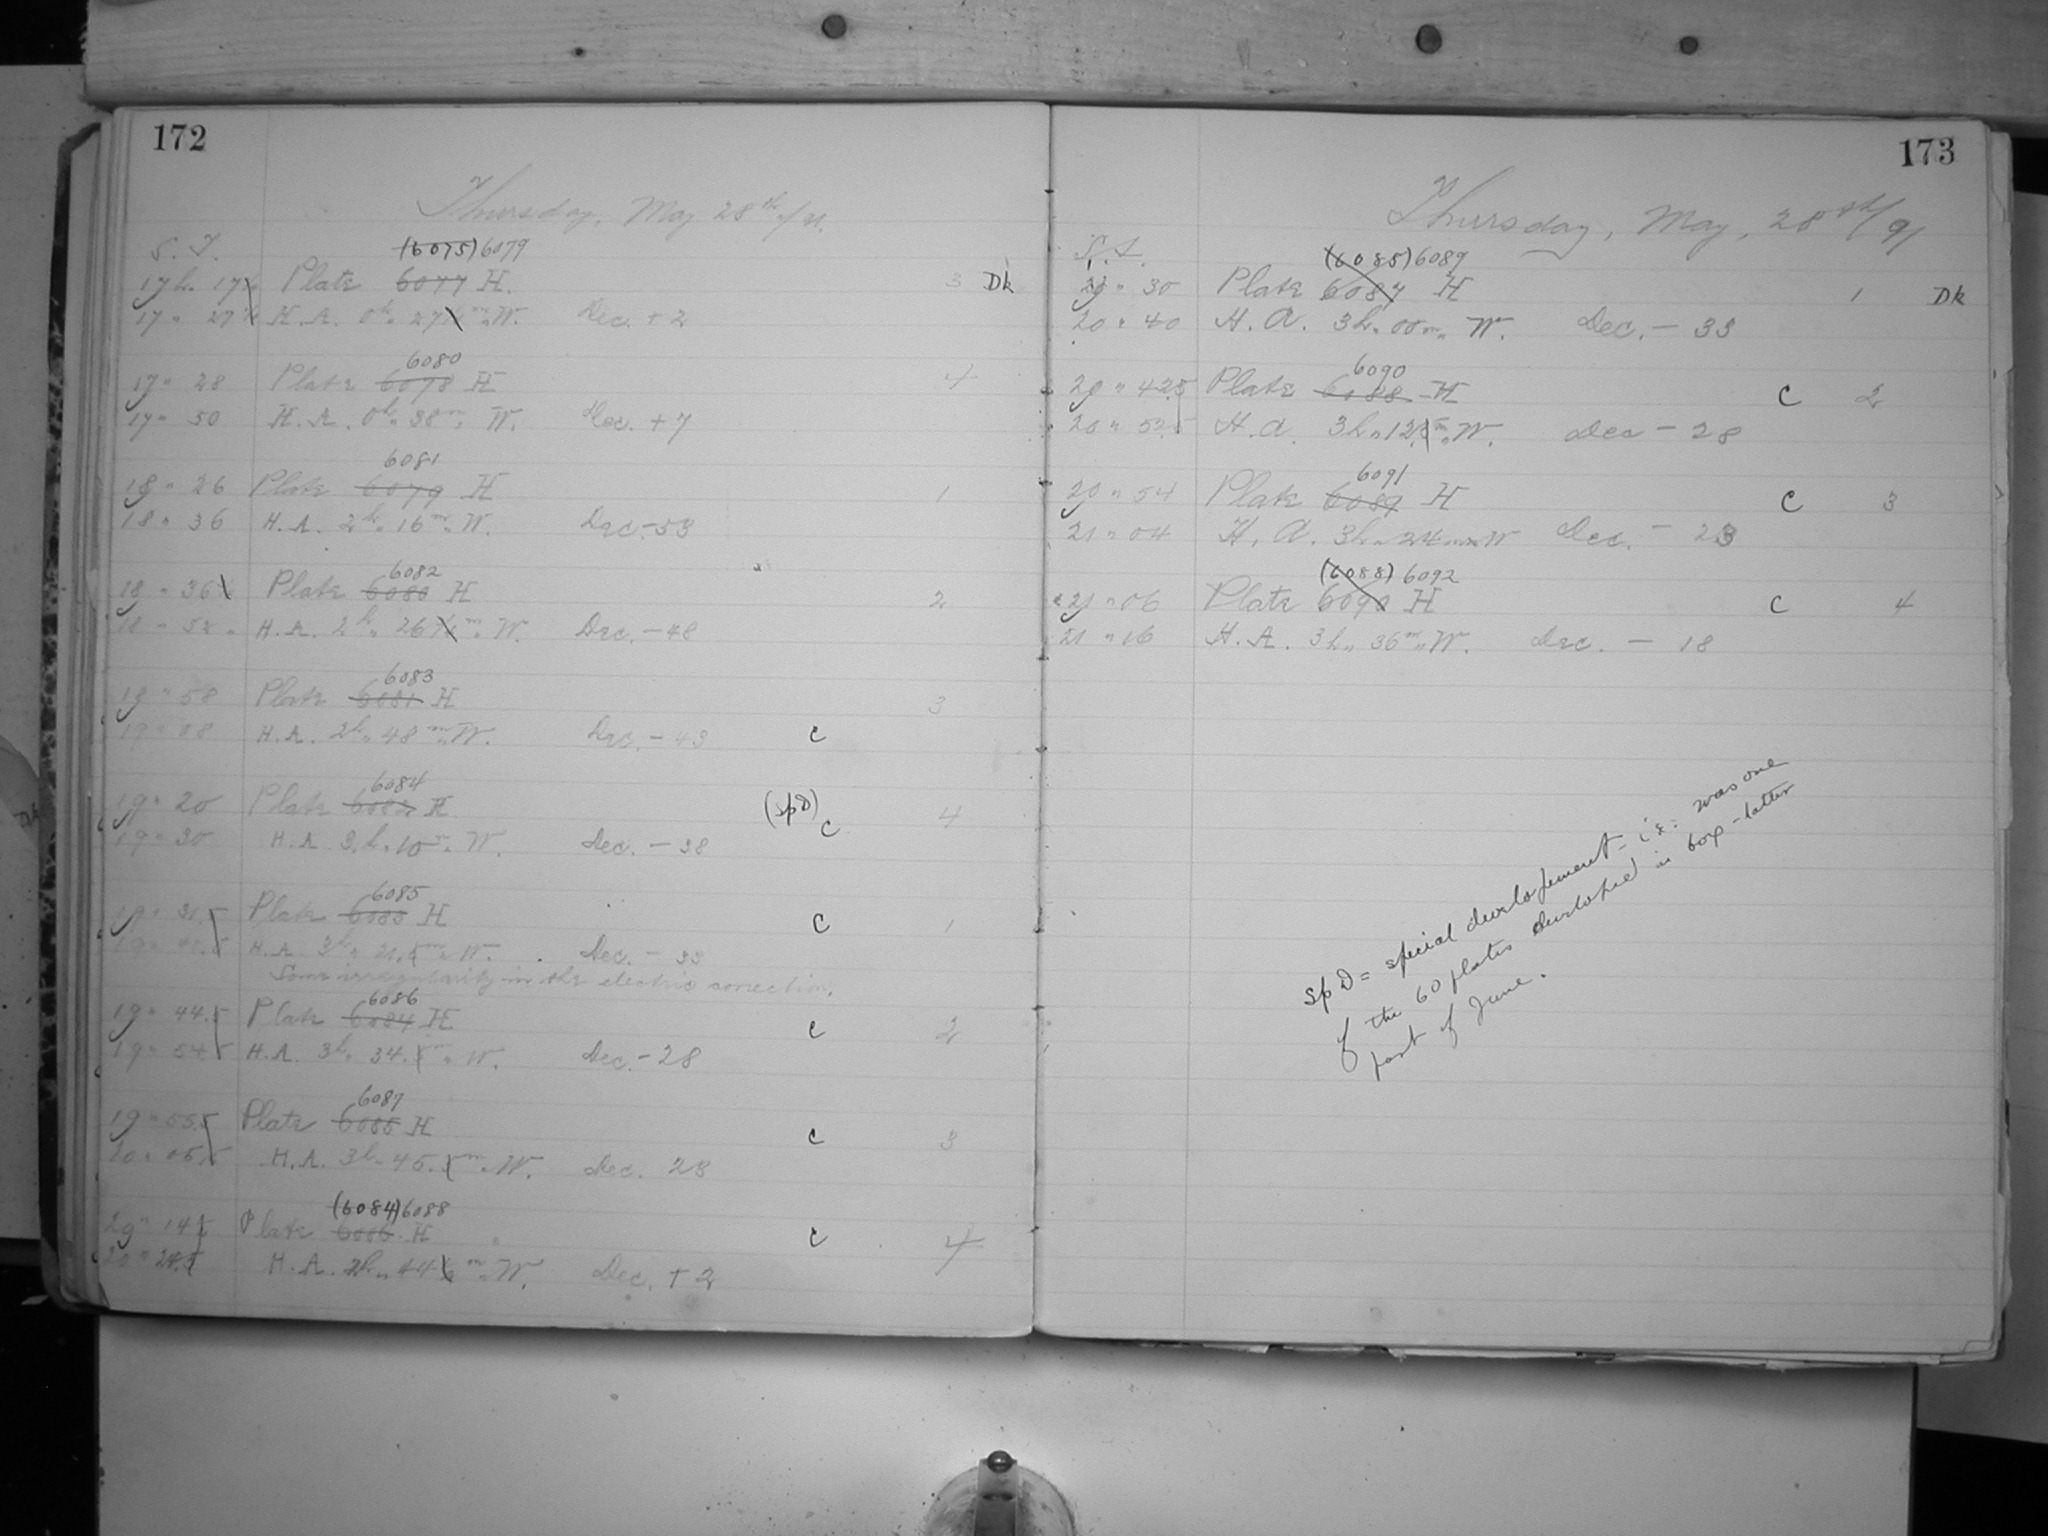 172
Thursday, May 28th /91.
S. T.
(6075) 6079
17h. 17½ Plate 6077 H. 3 Dk
17 " 27½ H. A. 0h " 27½ m " W. Dec. + 2
6080
17 " 28 Plate 6078 H 4
17 " 50 H. A. 0h " 38m " W. Dec. + 7
6081
18 " 26 Plate 6079 H 1
18 " 36 H. A. 2h " 16m " W. Dec. - 53
6082
18 " 36½ Plate 6080 H 2
18 " H. A. 2h " 26½ m " W. Dec. - 48
6083
18 " 58 Plate 6081 H 3
19 " 08 H. A. 2h " 48 m " W. Dec. - 43 C
6084
19 " 20 Plate 6082 H (SpD) C 4
19 " 30 H. A. 3h " 10m " W. Dec. - 38
6085
19 " 31.5 Plate 6083 H C 1
19 " 41.5 H. A. 3h " 21.5m " W. Dec. - 33
Some irregularity in the electric connection.
6086
19 " 44.5 Plate 6084 H C 2
19 " 54.5 H. A. 3h " 34.5m " W. Dec. - 28
6087
19 " 55.5 Plate 6085 H C 3
20 " 05.5 H. A. 3h " 45.5m " W. Dec. 23
(6084) 6088
20 " 14½ Plate 6086 H C 4
20 " 24.5 H. A. 2h " 44½ m " W. Dec. + 2
173
Thursday, May, 28th/91
S. T.
(6085) 6089
20 " 30 Plate 6087 H 1 Dk
20 " 40 H. A. 3h " 00m " W. Dec. - 33
6090
20 " 42.5 Plate 6088 H C 2
20 " 52.5 H. A. 3h " 12.5m " W. Dec - 28
6091
20 " 54 Plate 6089 H C 3
21 " 04 H. A. 3h " 24 " m W Dec. - 23
(6088) 6092
21 " 06 Plate 6090 H C 4
21 " 16 H. A. 3h " 36m " W. Dec. - 18
SpD = special development - i.e: was one
of the 60 plates developed in box - latter
part of June.